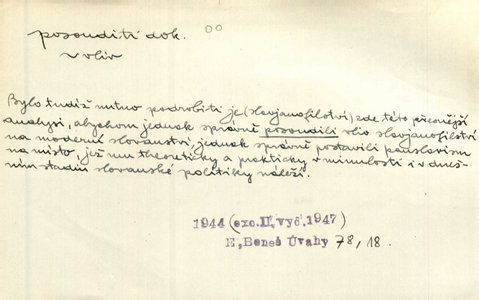 posouditi dok. 00
vliv
Bylo tudíž nutno podrobiti je (slovjanofilství) zde této přesnější
analysi, abychom jednak správně posoudili vliv slovjanofilství
na moderní slovanství, jednak správně postavili panslavism
na místo, jež mu theoreticky a prakticky v minulosti i v dneš-
ním stadiu slovanské politiky náleží.
1944 (exc. II, vyč. 1947)
E, Beneš Úvahy 78, 18.